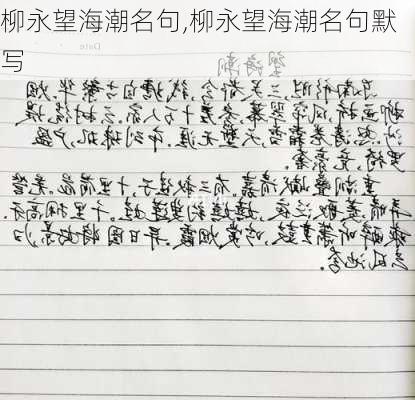 柳永望海潮名句,柳永望海潮名句默
写
Date
望海潮
东南形胜，三吴都会，钱塘自古繁华。烟
柳画桥，风帘翠幕，参差十万人家。云树绕堤
沙，怒涛卷霜雪，天堑无涯。市列珠玑，户盈
罗绮，竞豪奢。
重湖叠巘清嘉。有三秋桂子，十里荷花。羌管
弄晴，菱歌泛夜，嬉嬉钓叟莲娃。千骑拥高牙。
乘醉听箫鼓，吟赏烟霞。异日图将好景，归
去凤池夸。